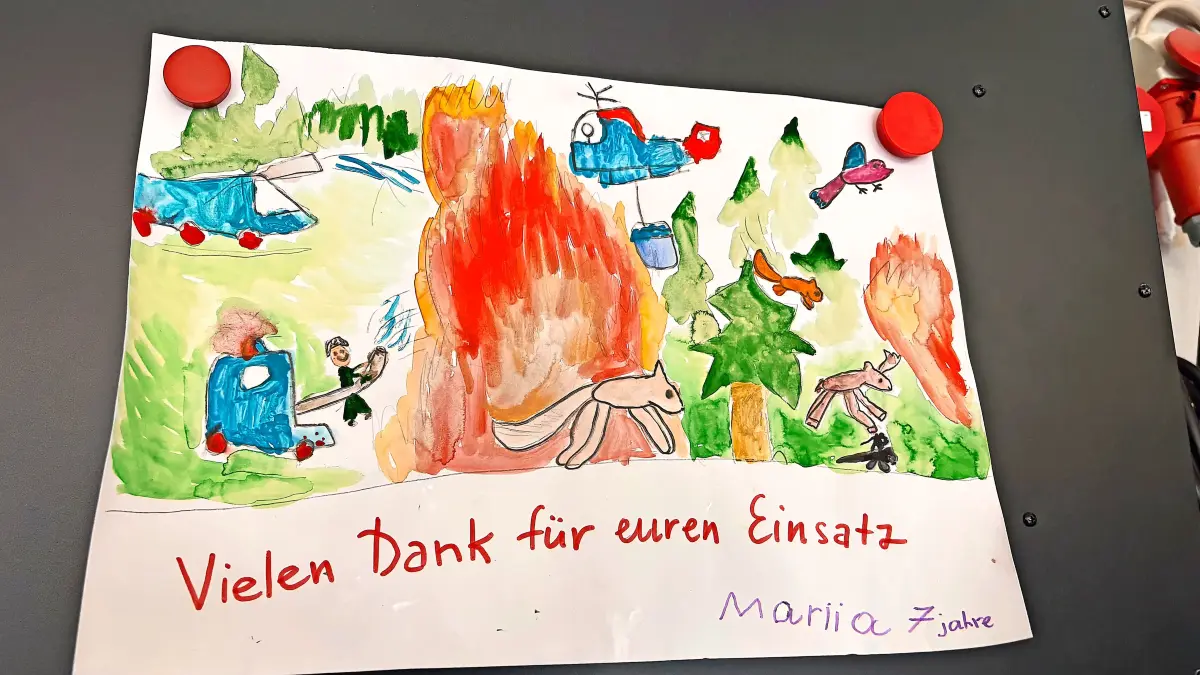 Vielen Dank für euren Einsatz
Mariia 7 jahre